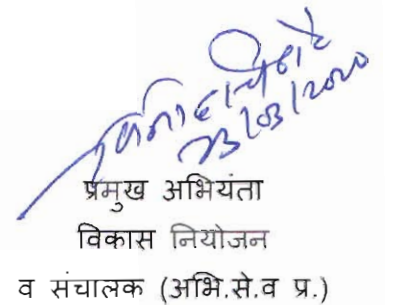 23/03/2020
प्रमुख अभियंता
विकास नियोजन
व संचालक (अभि.से.व प्र.)